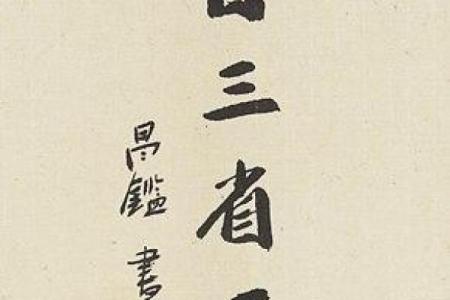 三省
昌鑑 書